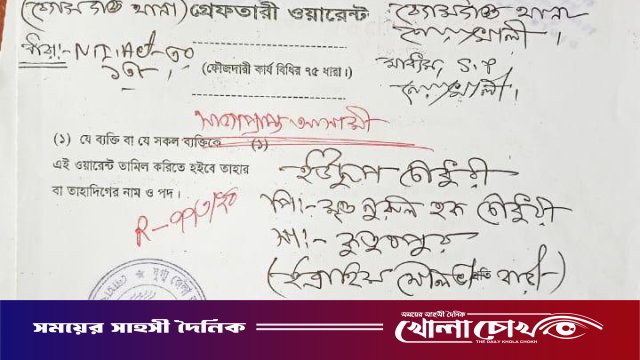 (বেগমগঞ্জ থানা) গ্রেফতারী ওয়ারেন্ট বেগমগঞ্জ থানা
নোয়াখালী।
ধারা:- N.I. Act-
(ফৌজদারী কার্য বিধির ৭৫ ধারা।)
S.P
নোয়াখালী।
সাজাপ্রাপ্ত আসামী
(১) যে ব্যক্তি বা যে সকল ব্যক্তিকে (১)
এই ওয়ারেন্ট তামিল করিতে হইবে তাহার
বা তাহাদিগের নাম ও পদ।
চৌধুরী
পিং:- মৃত নুরুল হক চৌধুরী
সাং:- কুতুবপুর
সময়ের সাহসী দৈনিক
সময়ের সাহসী দৈনিক
খোলা চোখ
THE DAILY KHOLA CHOKH